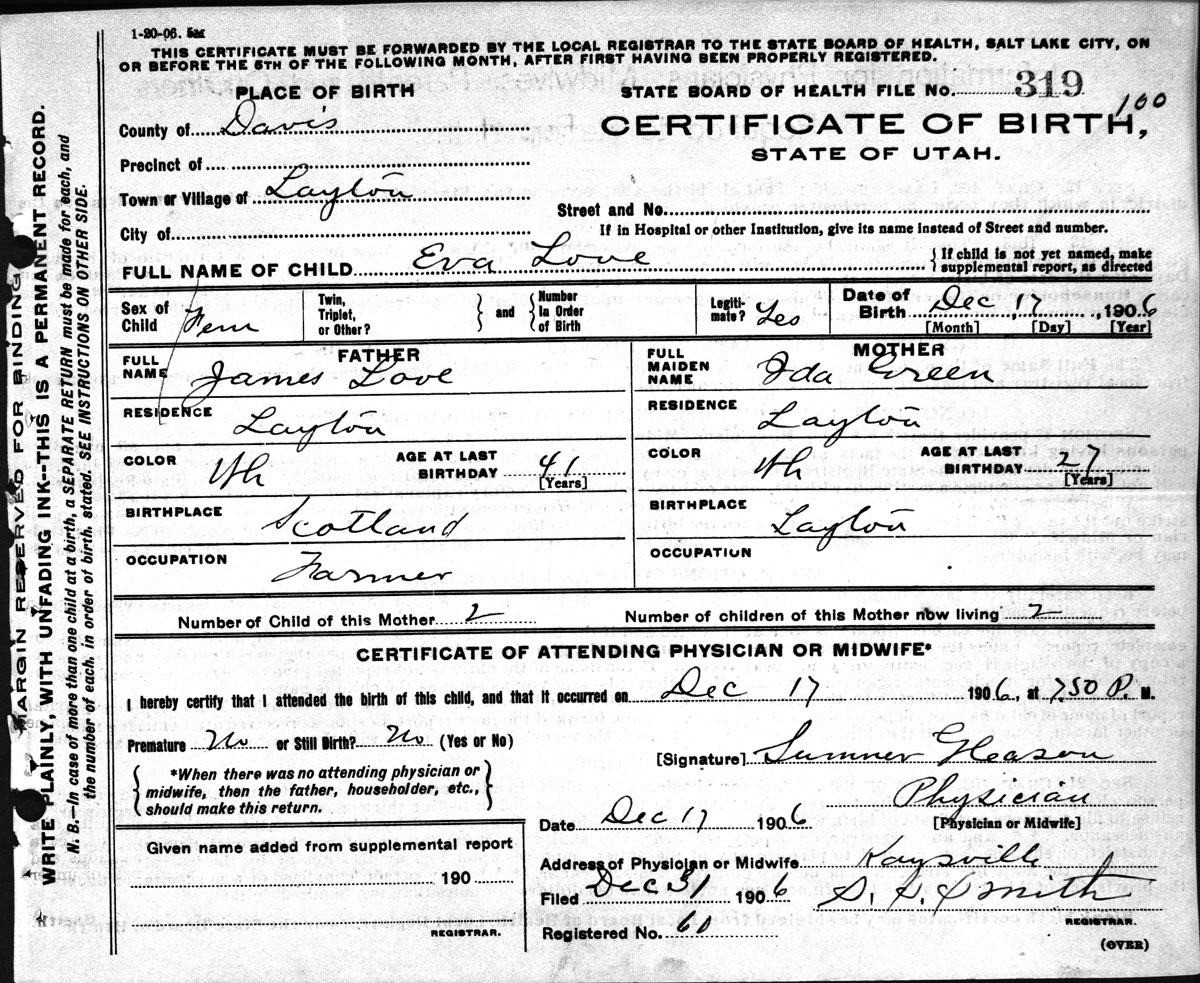 1-20-06. 5M
THIS CERTIFICATE MUST BE FORWARDED BY THE LOCAL REGISTRAR TO THE STATE BOARD OF HEALTH, SALT LAKE CITY, ON
OR BEFORE THE 5TH OF THE FOLLOWING MONTH, AFTER FIRST HAVING BEEN PROPERLY REGISTERED.
PLACE OF BIRTH
STATE BOARD OF HEALTH FILE NO. 319
100
County of Davis
CERTIFICATE OF BIRTH,
STATE OF UTAH.
Precinct of
Town or Village of Layton
Street and No.
City of
If in Hospital or other Institution, give its name instead of Street and number.
FULL NAME OF CHILD Eva Love
{ If child is not yet named, make
supplemental report, as directed
Sex of Child Fem
Twin, Triplet, or Other?
} and {
Number In Order of Birth
Legitimate? Yes
Date of Birth Dec 17, 1906
[Month] [Day] [Year]
FATHER
FULL NAME James Love
RESIDENCE Layton
COLOR Wh
AGE AT LAST BIRTHDAY 41
[Years]
BIRTHPLACE Scotland
OCCUPATION Farmer
MOTHER
FULL MAIDEN NAME Ida Green
RESIDENCE Layton
COLOR Wh
AGE AT LAST BIRTHDAY 27
[Years]
BIRTHPLACE Layton
OCCUPATION
Number of Child of this Mother 2
Number of children of this Mother now living 2
CERTIFICATE OF ATTENDING PHYSICIAN OR MIDWIFE*
I hereby certify that I attended the birth of this child, and that it occurred on Dec 17 1906, at 750 P. M.
Premature No or Still Birth? No (Yes or No)
[Signature] Sumner Gleason
{ *When there was no attending physician or
midwife, then the father, householder, etc.,
should make this return. }
Physician
Date Dec 17 1906
[Physician or Midwife]
Given name added from supplemental report
190
REGISTRAR.
Address of Physician or Midwife Kaysville
Filed Dec 31 1906
S. Smith
REGISTRAR.
Registered No. 60
(OVER)
MARGIN RESERVED FOR BINDING
WRITE PLAINLY, WITH UNFADING INK--THIS IS A PERMANENT RECORD.
N. B.—In case of more than one child at a birth, a SEPARATE RETURN must be made for each, and
the number of each, in order of birth, stated. SEE INSTRUCTIONS ON OTHER SIDE.